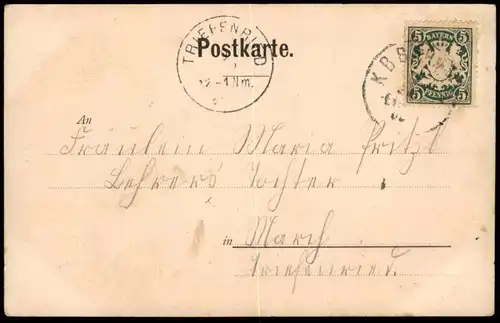 TRIEFENRIED
Postkarte.
12-1 Nm.
BAYERN
5 5
PFENNIG
5 5
An
Fräulein Maria Fritz
Lehrers Tochter
in March
Triefenried.